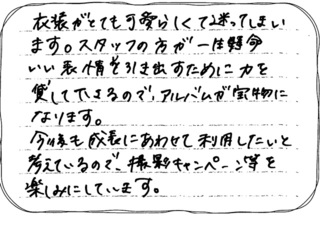 衣装がとても可愛らしくて迷ってしまい
ます。スタッフの方が一生懸命
いい表情を引き出すために力を
貸して下さるので、アルバムが宝物に
なります。
今後も成長にあわせて利用したいと
考えているので、撮影キャンペーン等を
楽しみにしています。